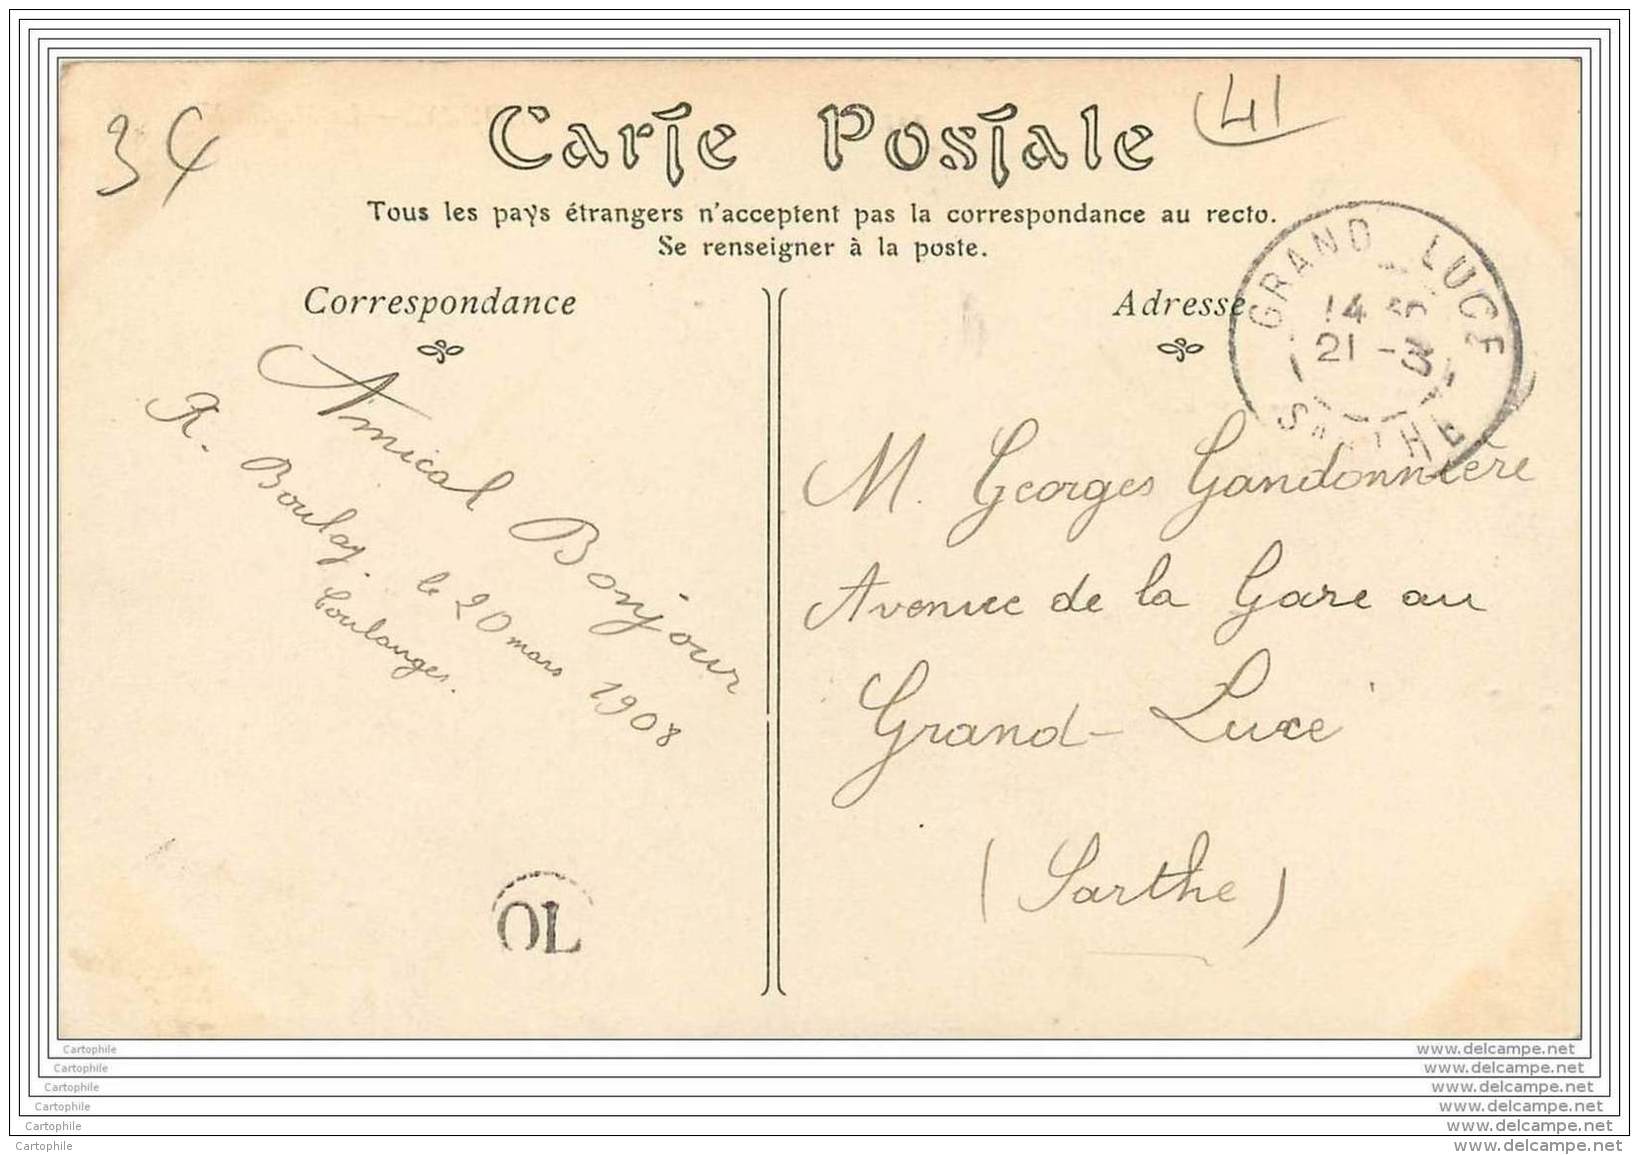 34
41
Carte Postale
Tous les pays étrangers n'acceptent pas la correspondance au recto.
Se renseigner à la poste.
Correspondance
Amical Bonjour
R. Boulay. le 20 mars 1908
Coulanges.
OL
Adresse
GRAND LUCE
14
21 -3
SARTHE
M. Georges Gandonnière
Avenue de la Gare au
Grand-Lucé
(Sarthe)
Cartophile
Cartophile
Cartophile
Cartophile
Cartophile
Cartophile
www.delcampe.net
www.delcampe.net
www.delcampe.net
www.delcampe.net
www.delcampe.net
www.delcampe.net